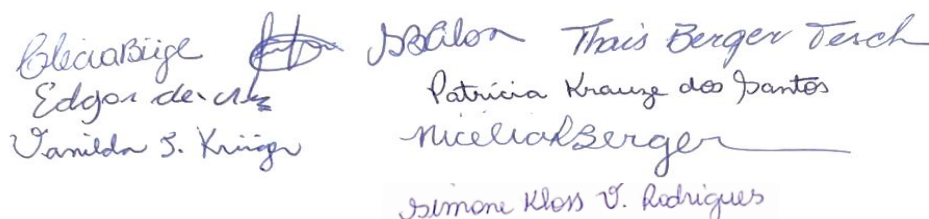 Thais Berger Tesch
Edgar de
Patrícia Krauze dos Santos
Vanilda S. Krüger
Nicélia R Berger
Simone Kloss V. Rodrigues